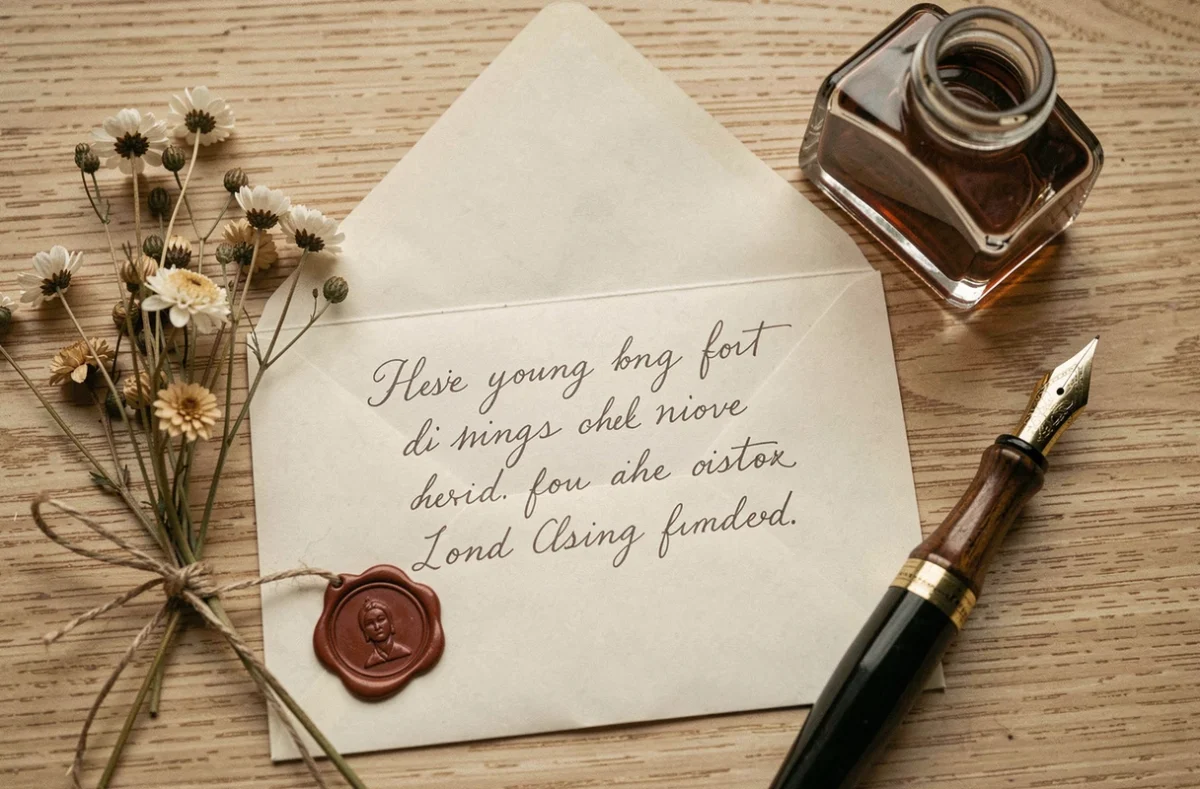 Hesie young bng foit
di nings chel niove
herid. fou ahe oistox
Lond Clsing fimderd.